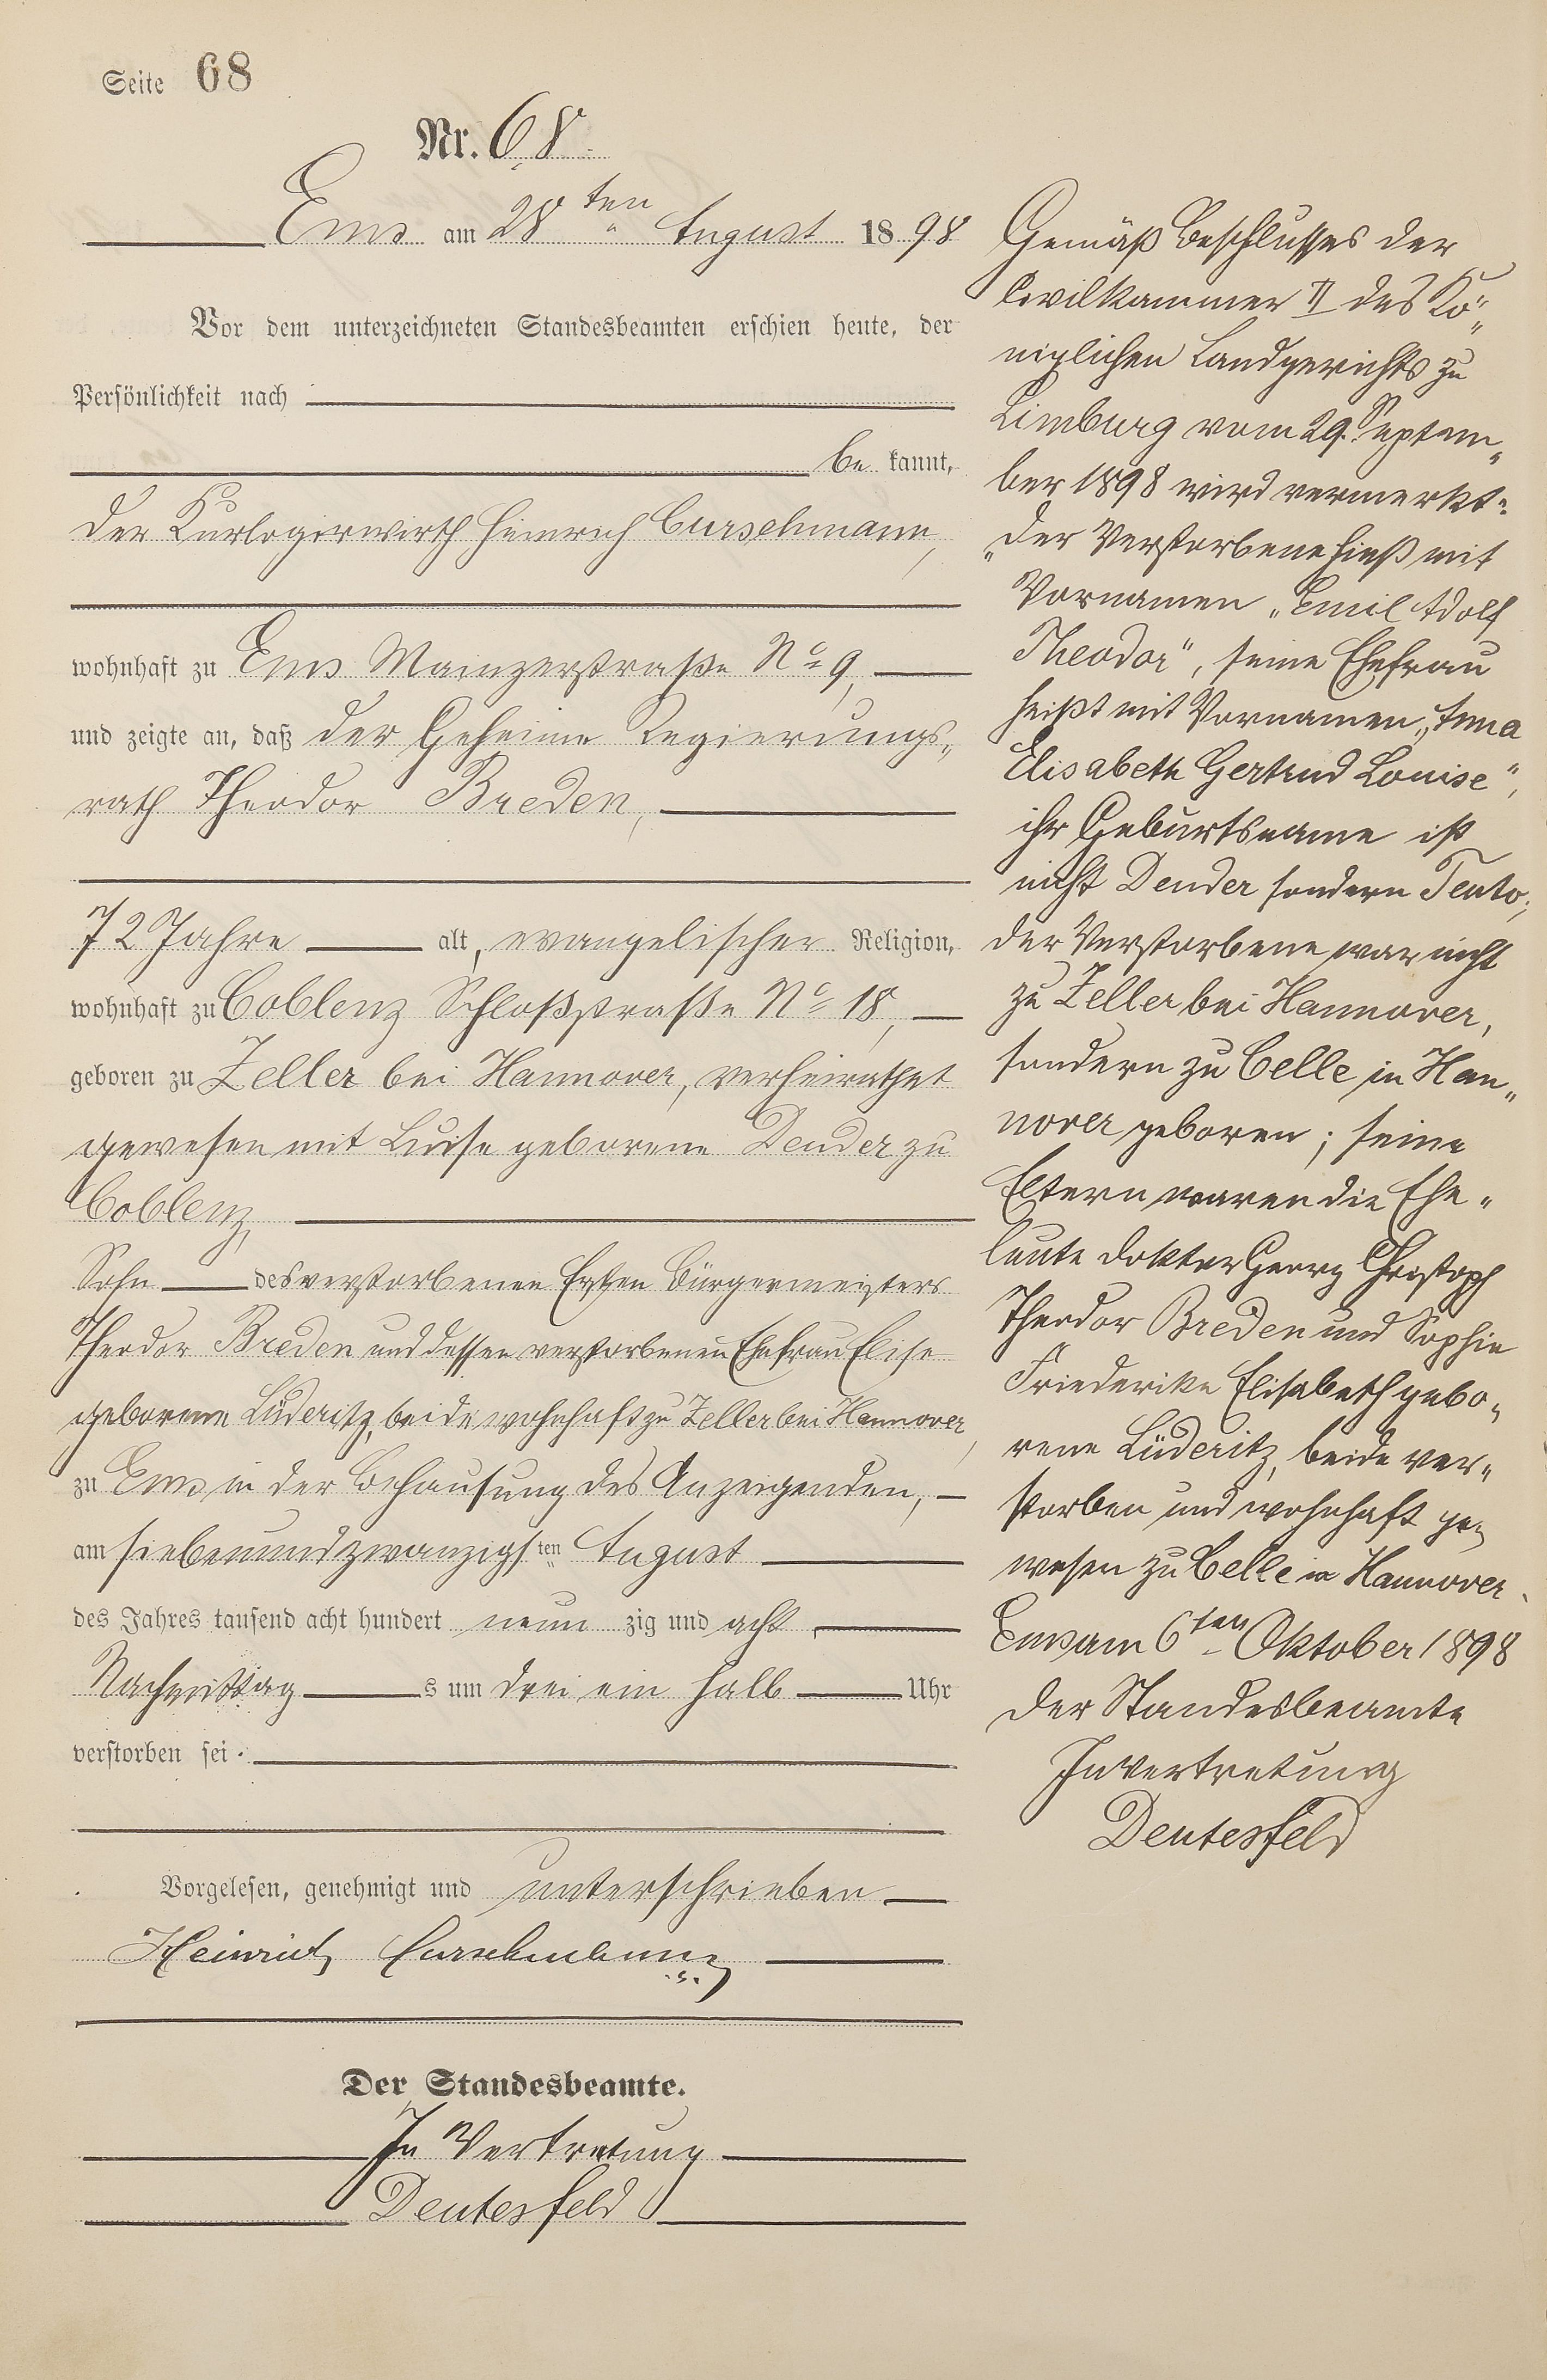 Seite 68
Nr. 68
Ems am 28ten August 1898
Vor dem unterzeichneten Standesbeamten erschien heute, der
Persönlichkeit nach
be kannt,
der Kurlogirwirth Heinrich Curschmann,
wohnhaft zu Ems Mainzerstraße No 9,
und zeigte an, daß der Geheime Regierungs„
rath Theodor Breden,
72 Jahre alt, evangelischer Religion,
wohnhaft zu Coblenz Schloßstraße No 18,
geboren zu Zeller bei Hannover, verheirathet
gewesen mit Luise geborene Dender zu
Coblenz,
Sohn des verstorbenen Ersten Bürgermeisters
Theodor Breden und dessen verstorbenen Ehefrau Elise
geborene Lüderitz, beide wohnhaft zu Zeller bei Hannover,
zu Ems in der Behausung des Anzeigenden,
am siebenundzwanzigsten August
des Jahres tausend acht hundert neun zig und acht,
Nachmittag s um drei ein halb Uhr
verstorben sei.
Vorgelesen, genehmigt und unterschrieben
Heinrich Curschmann
Der Standesbeamte.
In Vertretung
Deutesfeld
Gemäß Beschlusses der
Civilkammer II des Kö„
niglichen Landgerichts zu
Limburg vom 29. Septem„
ber 1898 wird vermerkt:
„Der Verstorbene hieß mit
Vornamen „Emil Adolf
Theodor", seine Ehefrau
heißt mit Vornamen „Anna
Elisabeth Gertrud Louise",
ihr Geburtsname ist
nicht Dender sondern Teuto;
der Verstorbene war nicht
zu Zeller bei Hannover,
sondern zu Celle in Han„
nover geboren; seine
Eltern waren die Ehe„
leute Doktor Georg Christoph
Theodor Breden und Sophie
Friederike Elisabeth gebo„
rene Lüderitz, beide ver„
storben und wohnhaft ge„
wesen zu Celle in Hannover.
Ems am 6ten Oktober 1898
Der Standesbeamte
In Vertretung
Deutesfeld